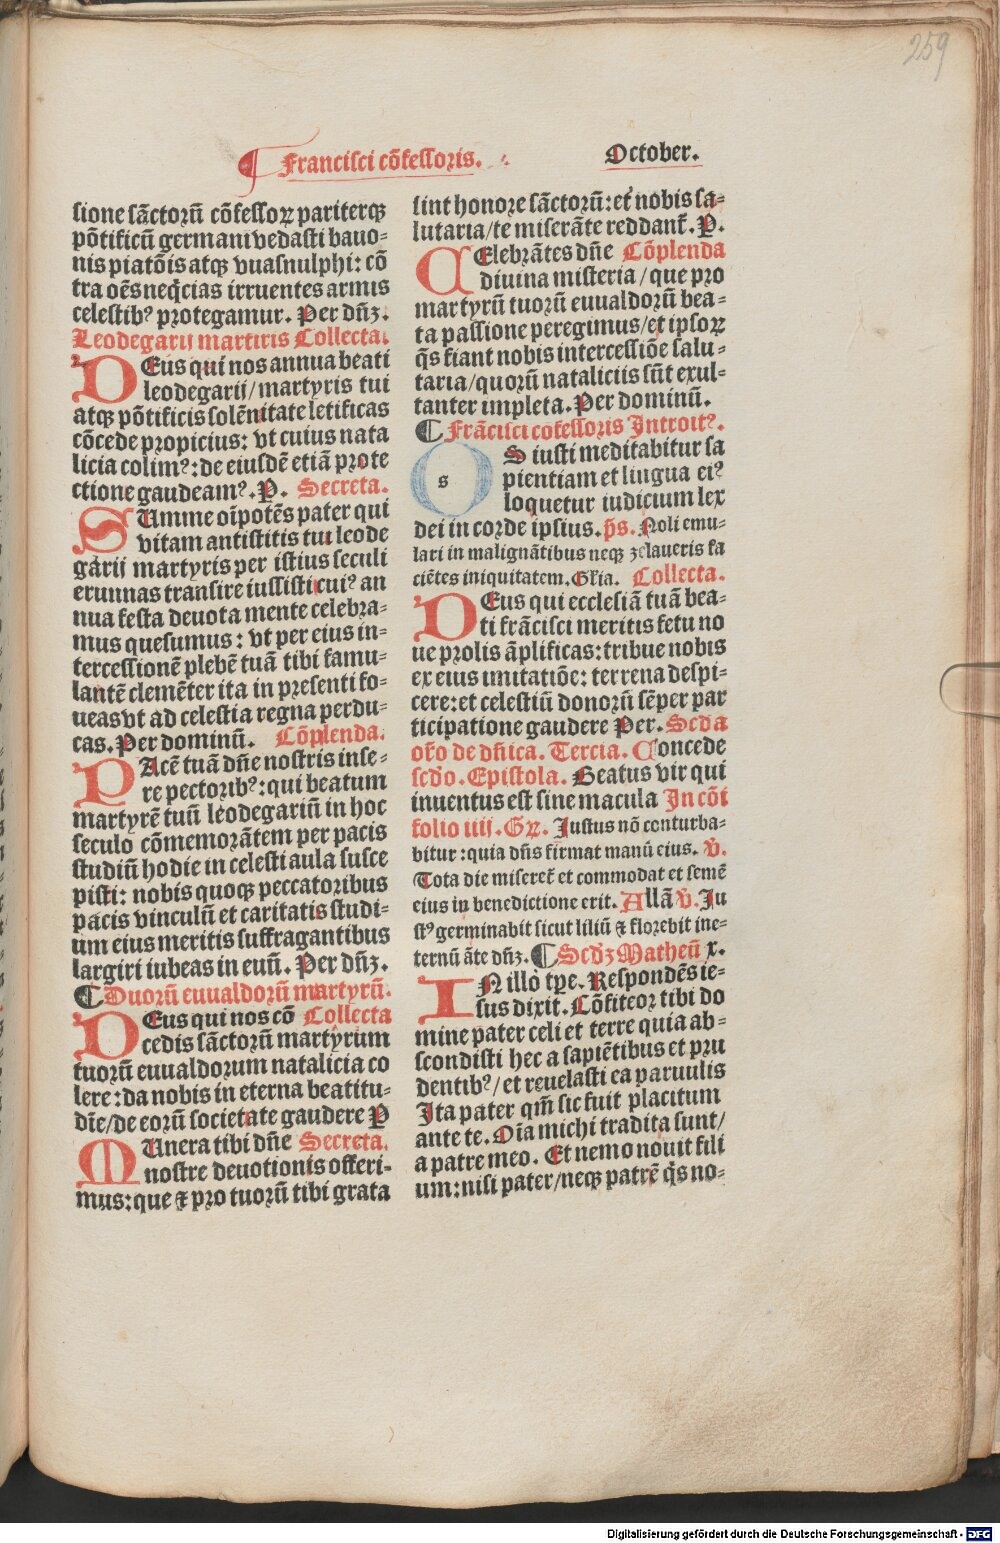 259
¶ Francisci cōfessoris.
October.
sione sāctorū cōfessoꝝ pariterqꝫ
pōtificū germani vedasti bauo-
nis piatōis atqꝫ vuasnulphi: cō
tra oēs neq̄cias irruentes armis
celestibꝰ protegamur. Per dn̄ꝫ.
Leodegarij martiris Collecta.
DEus qui nos annua beati
leodegarij/martyris tui
atqꝫ pōtificis solēnitate letificas
cōcede propicius: vt cuius nata
licia colimꝰ: de eiusdē etiā prote
ctione gaudeamꝰ. P. Secreta.
SUmme oīpotēs pater qui
vitam antistitis tui leode
garij martyris per istius seculi
erumnas transire iussisti cuiꝰ an
nua festa deuota mente celebra-
mus quesumus: vt per eius in-
tercessionē plebē tuā tibi famu-
lantē clemēter ita in presenti fo-
ueas vt ad celestia regna perdu-
cas. Per dominū. Cōplenda.
PAcē tuā dn̄e nostris inse-
re pectoribꝰ: qui beatum
martyrē tuū leodegariū in hoc
seculo cōmemorātem per pacis
studiū hodie in celesti aula susce
pisti: nobis quoqꝫ peccatoribus
pacis vinculū et caritatis studi-
um eius meritis suffragantibus
largiri iubeas in euū. Per dn̄ꝫ.
¶ Duorū euualdorū martyrū.
DEus qui nos cō Collecta
cedis sāctorū martyrum
tuorū euualdorum natalicia co
lere: da nobis in eterna beatitu-
dīe/de eorū societate gaudere P
MUnera tibi dn̄e Secreta.
nostre deuotionis offeri-
mus: que ⁊ pro tuorū tibi grata
sint honore sāctorū: et nobis sa-
lutaria/te miserāte reddant̄. P.
CElebrātes dn̄e Cōplenda
diuina misteria/que pro
martyrū tuorū euualdorū bea-
ta passione peregimus/et ipsoꝝ
q̄s fiant nobis intercessiōe salu-
taria/quorū nataliciis sūt exul-
tanter impleta. Per dominū.
¶ Frācisci cōfessoris Introitꝰ.
OS iusti meditabitur sa
pientiam et lingua eiꝰ
loquetur iudicium lex
dei in corde ipsius. p̄s. Noli emu-
lari in malignātibus neqꝫ zelaueris fa
ciētes iniquitatem. Gl̄ia. Collecta.
DEus qui ecclesiā tuā bea-
ti frācisci meritis fetu no
ue prolis āplificas: tribue nobis
ex eius imitatiōe: terrena despi-
cere: et celestiū donorū sēper par
ticipatione gaudere Per. Scd̄a
or̄o de dn̄ica. Tercia. Concede
scd̄o. Epistola. Beatus vir qui
inuentus est sine macula In cōi
folio iiij. Gꝝ. Justus nō conturba-
bitur: quia dn̄s firmat manū eius. v̄.
Tota die miseret̄ et commodat et semē
eius in benedictione erit. Allā v̄. Ju
stꝰ germinabit sicut liliū ⁊ florebit ine-
ternū āte dn̄ꝫ. ¶ Scd̄ꝫ Matheū x.
IN illo tp̄e. Respondēs ie-
sus dixit. Cōfiteor tibi do
mine pater celi et terre quia ab-
scondisti hec a sapiētibus et pru
dentibꝰ/et reuelasti ea paruulis
Ita pater qm̄ sic fuit placitum
ante te. Oīa michi tradita sunt/
a patre meo. Et nemo nouit fili
um: nisi pater/neqꝫ patrē q̄s no-
Digitalisierung gefördert durch die Deutsche Forschungsgemeinschaft - DFG